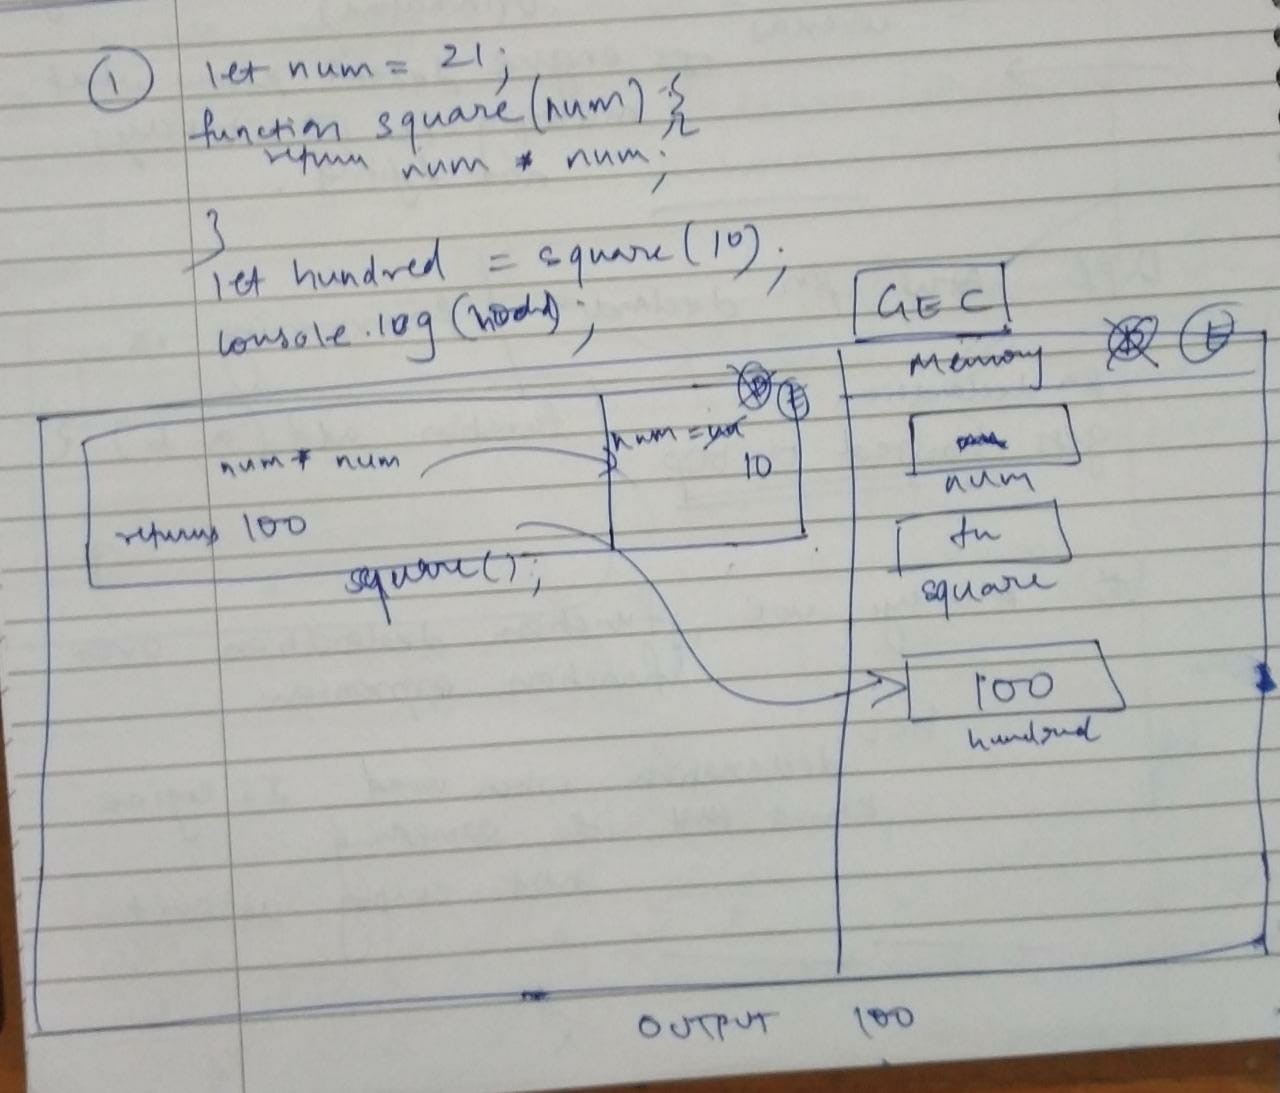 1
let num = 21;
function square(num) {
return num * num;
}
let hundred = square(10);
console.log();
GEC
Memory
E
E
num =
10
num * num
returns 100
square();
num
fn
square
100
hundred
OUTPUT 100